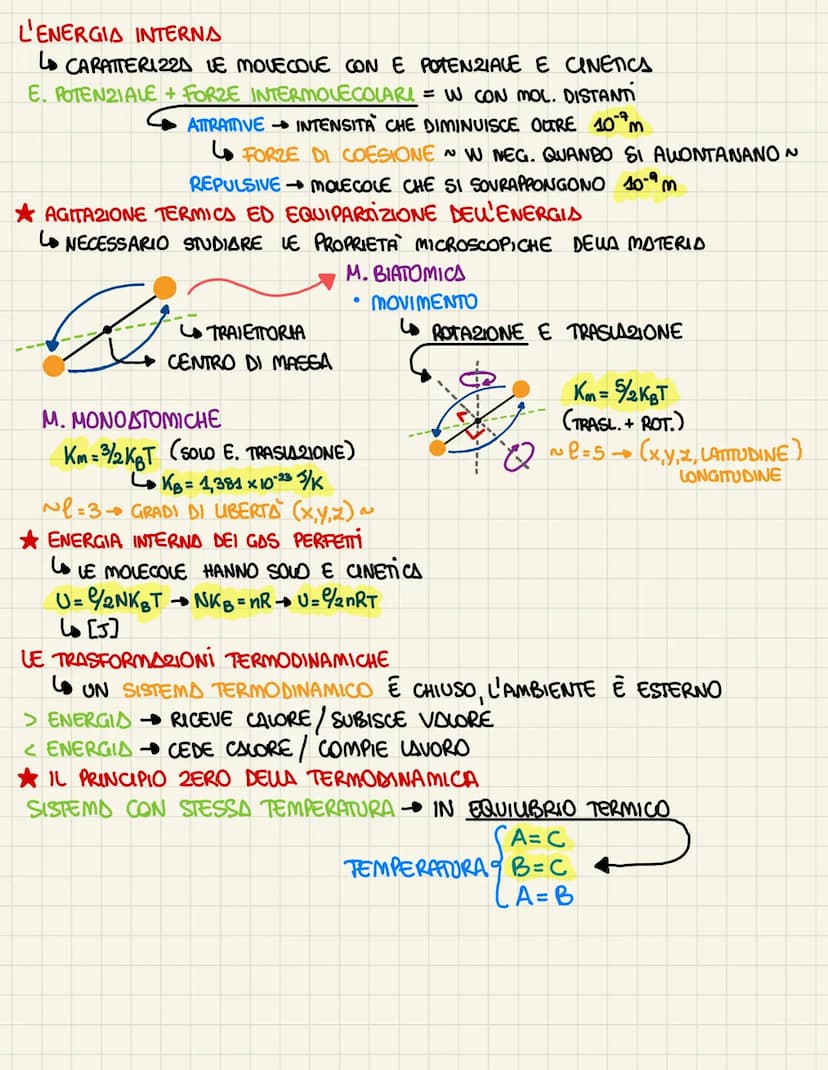 L'ENERGIA INTERNA
↳ CARATTERIZZA LE MOLECOLE CON E POTENZIALE E CINETICA
E. POTENZIALE + FORZE INTERMOLECOLARI = W CON MOL. DISTANTI
ATTRATTIVE → INTENSITÀ CHE DIMINUISCE OLTRE 10⁻⁹m
↳ FORZE DI COESIONE ~ W NEG. QUANDO SI ALLONTANANO ~
REPULSIVE → MOLECOLE CHE SI SOVRAPPONGONO 10⁻⁹m
★ AGITAZIONE TERMICA ED EQUIPARTIZIONE DELL'ENERGIA
↳ NECESSARIO STUDIARE LE PROPRIETÀ MICROSCOPICHE DELLA MATERIA
M. BIATOMICA
• MOVIMENTO
↳ TRAIETTORIA
↳ ROTAZIONE E TRASLAZIONE
CENTRO DI MASSA
Km = 5/2 KBT
(TRASL. + ROT.)
~ℓ=5 → (x,y,z, LATITUDINE)
LONGITUDINE
M. MONOATOMICHE
Km = 3/2 KBT (SOLO E. TRASLAZIONE)
↳ KB = 1,381 × 10⁻²³ J/K
~ℓ=3 → GRADI DI LIBERTÀ (x,y,z) ~
★ ENERGIA INTERNA DEI GAS PERFETTI
↳ LE MOLECOLE HANNO SOLO E CINETICA
U = ℓ/2 NKBT → NKB = nR → U = ℓ/2 nRT
↳ [J]
LE TRASFORMAZIONI TERMODINAMICHE
↳ UN SISTEMA TERMODINAMICO È CHIUSO, L'AMBIENTE È ESTERNO
> ENERGIA → RICEVE CALORE / SUBISCE VALORE
< ENERGIA → CEDE CALORE / COMPIE LAVORO
★ IL PRINCIPIO ZERO DELLA TERMODINAMICA
SISTEMA CON STESSA TEMPERATURA → IN EQUILIBRIO TERMICO
A = C
TEMPERATURA { B = C
A = B